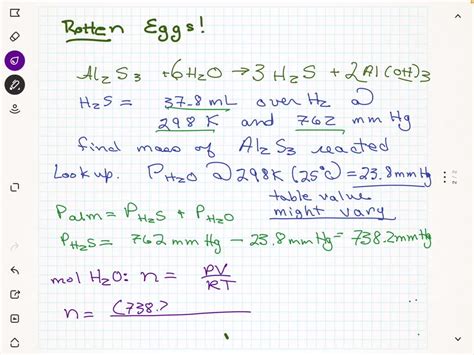 Rotten Eggs!
Al2S3 + 6H2O → 3 H2S + 2Al(OH)3
H2S = 37.8 mL over H2 @
298 K and 762 mm Hg
find mass of Al2S3 reacted
Look up. PH2O @ 298K (25°C) = 23.8 mm Hg
table value
might vary
Patm = PH2S + PH2O
PH2S = 762 mm Hg - 23.8 mm Hg = 738.2 mm Hg
mol H2O: n = PV/RT
n = (738.2